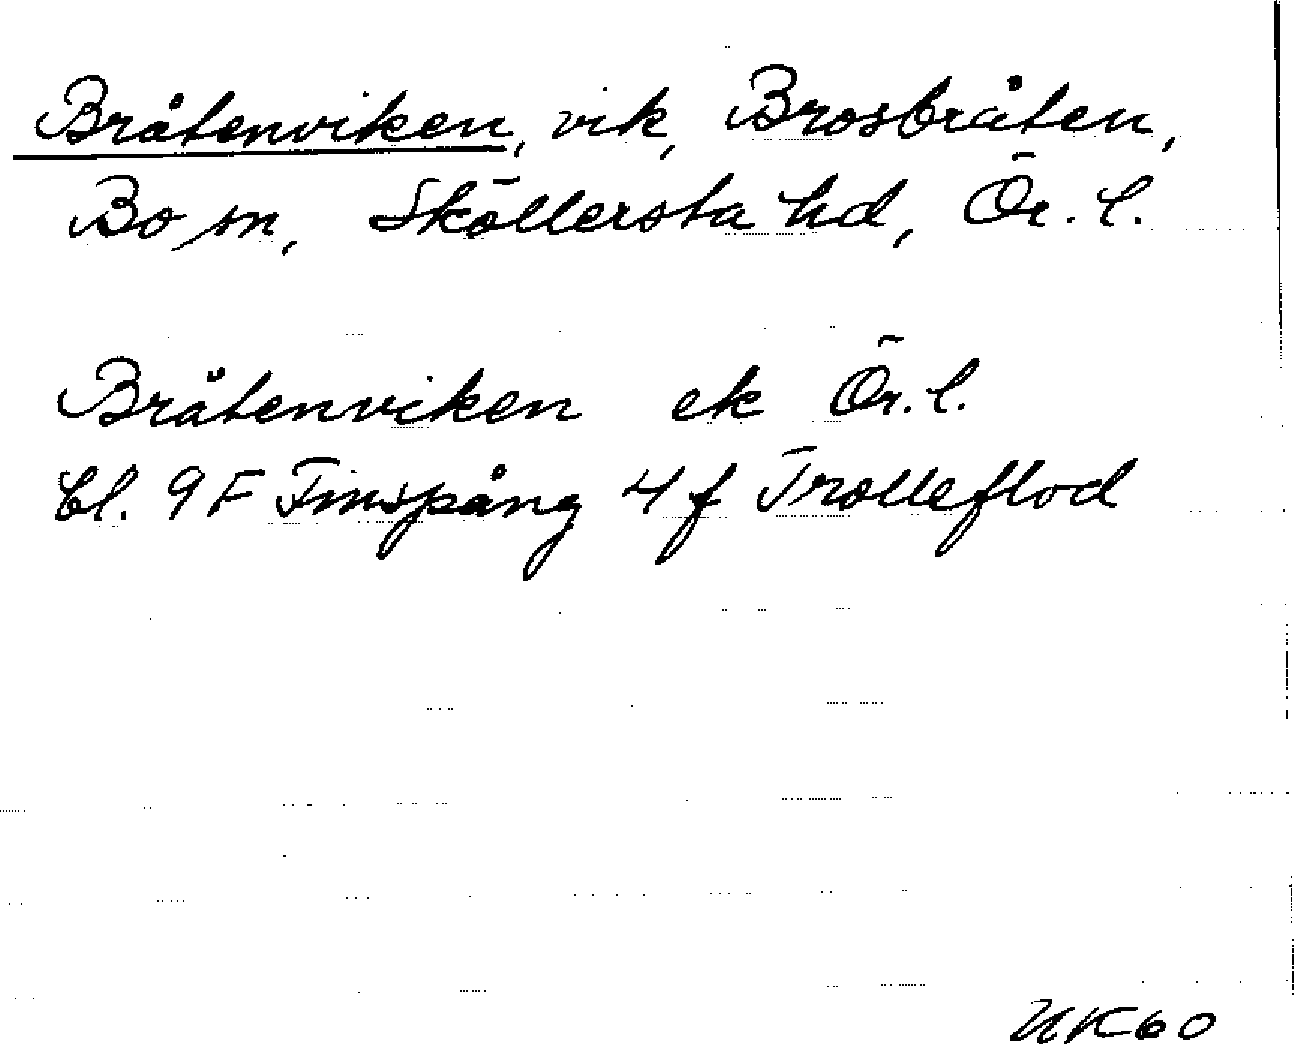 Bråtenviken, vik, Brosbråten,
Bo sn, Sköllersta hd, Ör. l.
Bråtenviken ek Ör. l.
bl. 9 F Finspång 4 f Trolleflod
UK60